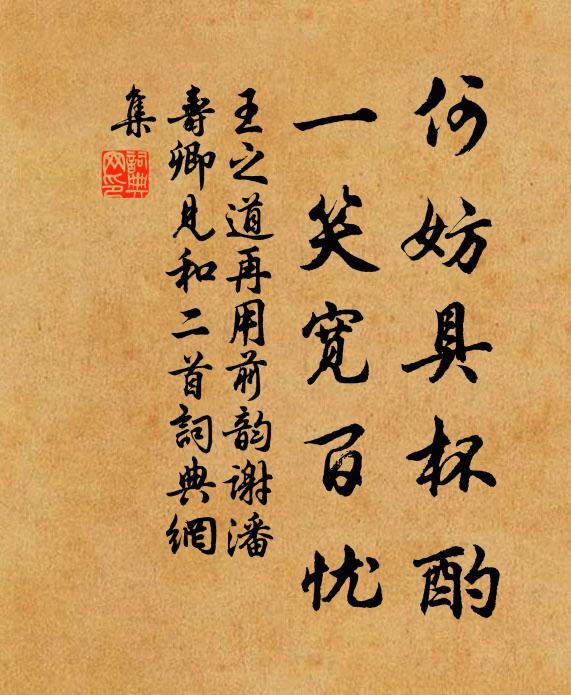 何妨具杯酌
一笑寬百忧
王之道再用前韵谢潘
壽卿見和二首詞典網
集
詞典
网印